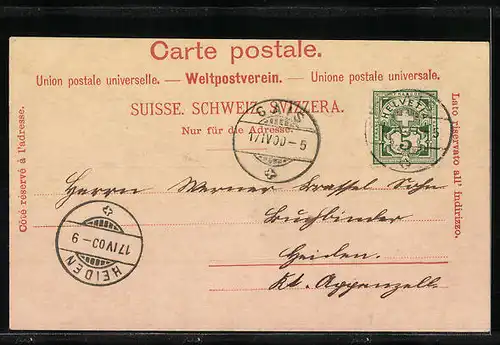 Carte postale.
Union postale universelle. — Weltpostverein. — Unione postale universale.
SUISSE. SCHWEIZ. SVIZZERA.
Nur für die Adresse.
Côté réservé à l'adresse.
Lato riservato all' indirizzo.
HELVETIA
5
GAIS
17 IV 00 - 5
HEIDEN
17 IV 00 - 9
Herrn Werner Sohn
Buchbinder
Heiden.
Kt. Appenzell.